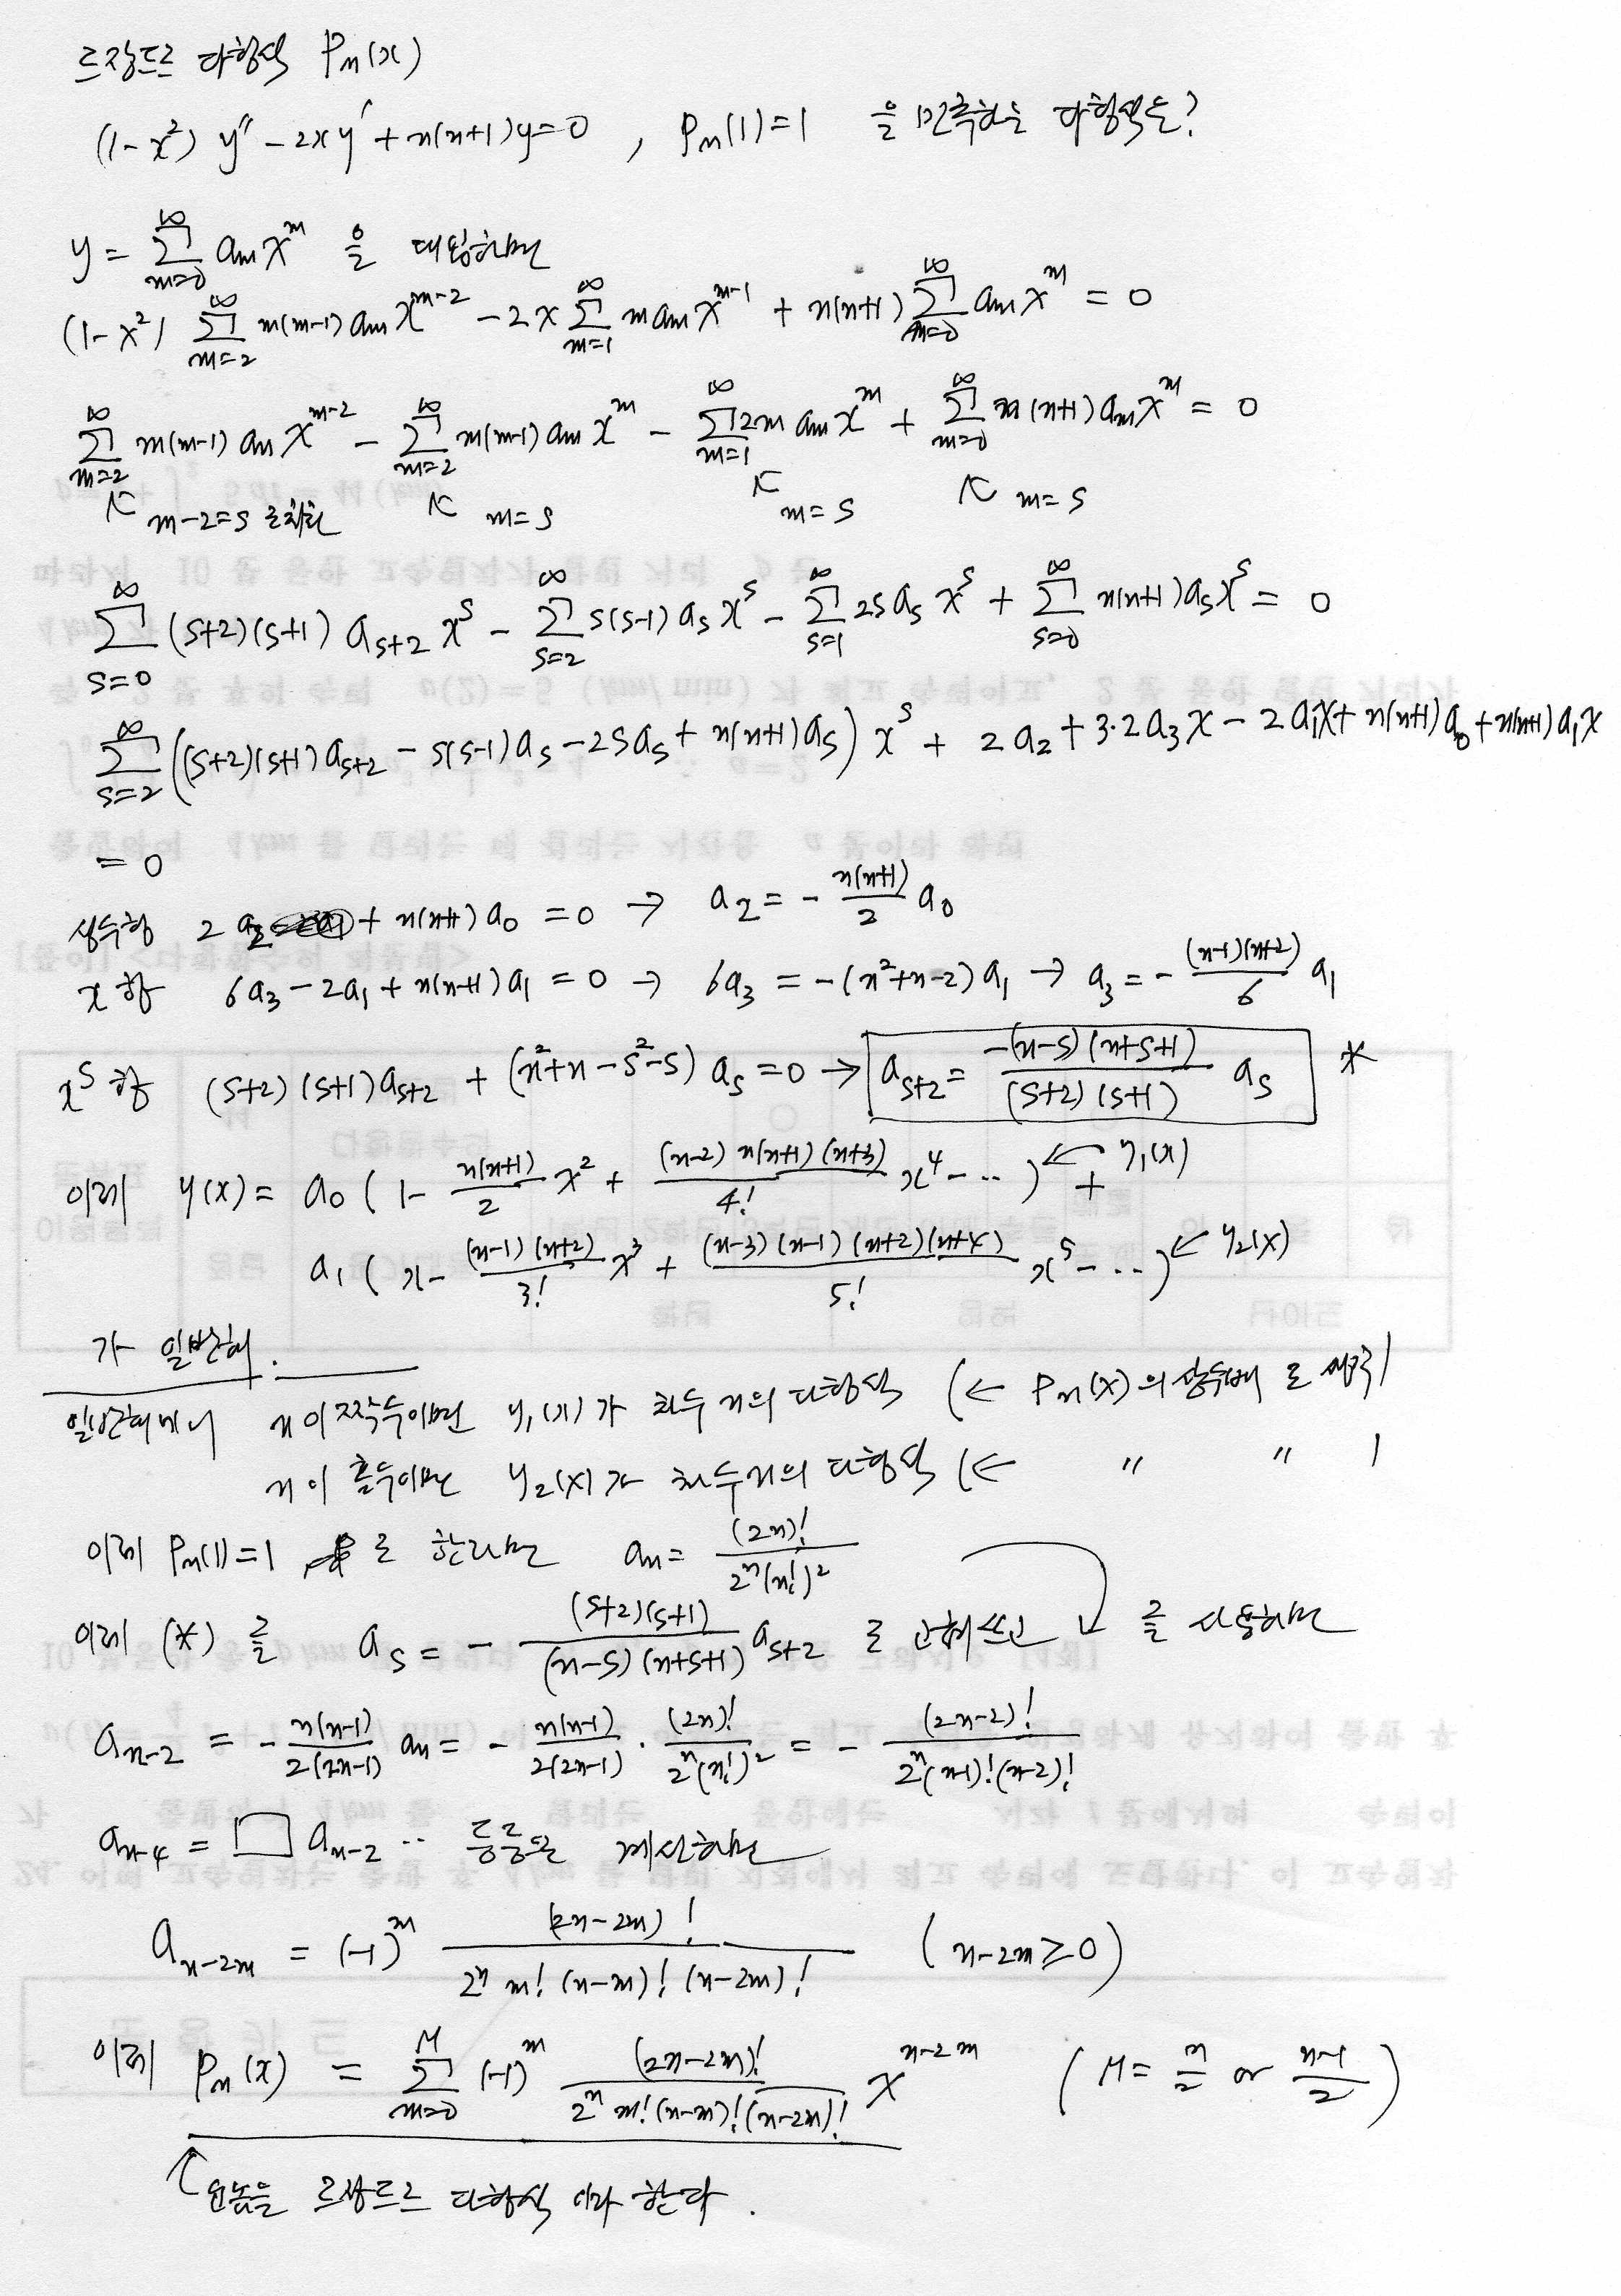 르장드르 다항식 Pn(x)
(1-x²) y'' - 2xy' + n(n+1)y = 0 , Pn(1)=1 을 만족하는 다항식은?
y = ∑_{m=0}^{∞} a_m x^m 을 대입하면
(1-x²) ∑_{m=2}^{∞} m(m-1) a_m x^{m-2} - 2x ∑_{m=1}^{∞} m a_m x^{m-1} + n(n+1) ∑_{m=0}^{∞} a_m x^m = 0
∑_{m=2}^{∞} m(m-1) a_m x^{m-2} - ∑_{m=2}^{∞} m(m-1) a_m x^m - ∑_{m=1}^{∞} 2m a_m x^m + ∑_{m=0}^{∞} n(n+1) a_m x^m = 0
↖ m-2=s 로치환 ↖ m=s ↖ m=s ↖ m=s
∑_{s=0}^{∞} (s+2)(s+1) a_{s+2} x^s - ∑_{s=2}^{∞} s(s-1) a_s x^s - ∑_{s=1}^{∞} 2s a_s x^s + ∑_{s=0}^{∞} n(n+1) a_s x^s = 0
∑_{s=2}^{∞} ((s+2)(s+1) a_{s+2} - s(s-1) a_s - 2s a_s + n(n+1) a_s) x^s + 2a_2 + 3·2 a_3 x - 2a_1 x + n(n+1) a_0 + n(n+1) a_1 x
= 0
상수항 2 a_2 + n(n+1) a_0 = 0 → a_2 = - n(n+1)/2 a_0
x 항 6a_3 - 2a_1 + n(n+1) a_1 = 0 → 6a_3 = -(n²+n-2) a_1 → a_3 = - (n-1)(n+2)/6 a_1
x^s 항 (s+2)(s+1) a_{s+2} + (n²+n-s²-s) a_s = 0 → a_{s+2} = -(n-s)(n+s+1)/((s+2)(s+1)) a_s *
이때 y(x) = a_0 ( 1 - n(n+1)/2 x² + (n-2)n(n+1)(n+3)/4! x⁴ - ·· ) ← y_1(x) +
a_1 ( x - (n-1)(n+2)/3! x³ + (n-3)(n-1)(n+2)(n+4)/5! x⁵ - ·· ) ← y_2(x)
가 일반해.
일반해에서 n이 짝수이면 y_1(x)가 차수 n의 다항식 (← Pn(x)의 상수배 로 생각)
n이 홀수이면 y_2(x)가 차수 n의 다항식 (← 〃 〃 )
이때 Pn(1)=1 로 한다면 a_n = (2n)!/(2^n (n!)²)
이때 (*) 를 a_s = - (s+2)(s+1)/((n-s)(n+s+1)) a_{s+2} 로 고쳐쓰고 ↓ 를 사용하면
a_{n-2} = - n(n-1)/(2(2n-1)) a_n = - n(n-1)/(2(2n-1)) · (2n)!/(2^n (n!)²) = - (2n-2)!/(2^n (n-1)!(n-2)!)
a_{n-4} = □ a_{n-2} ·· 등등을 계산하면
a_{n-2m} = (-1)^m (2n-2m)!/(2^n m! (n-m)! (n-2m)!) (n-2m ≥ 0)
이때 Pn(x) = ∑_{m=0}^{M} (-1)^m (2n-2m)!/(2^n m! (n-m)! (n-2m)!) x^{n-2m} (M = n/2 or (n-1)/2)
↖ 르장드르 다항식 이라 한다.